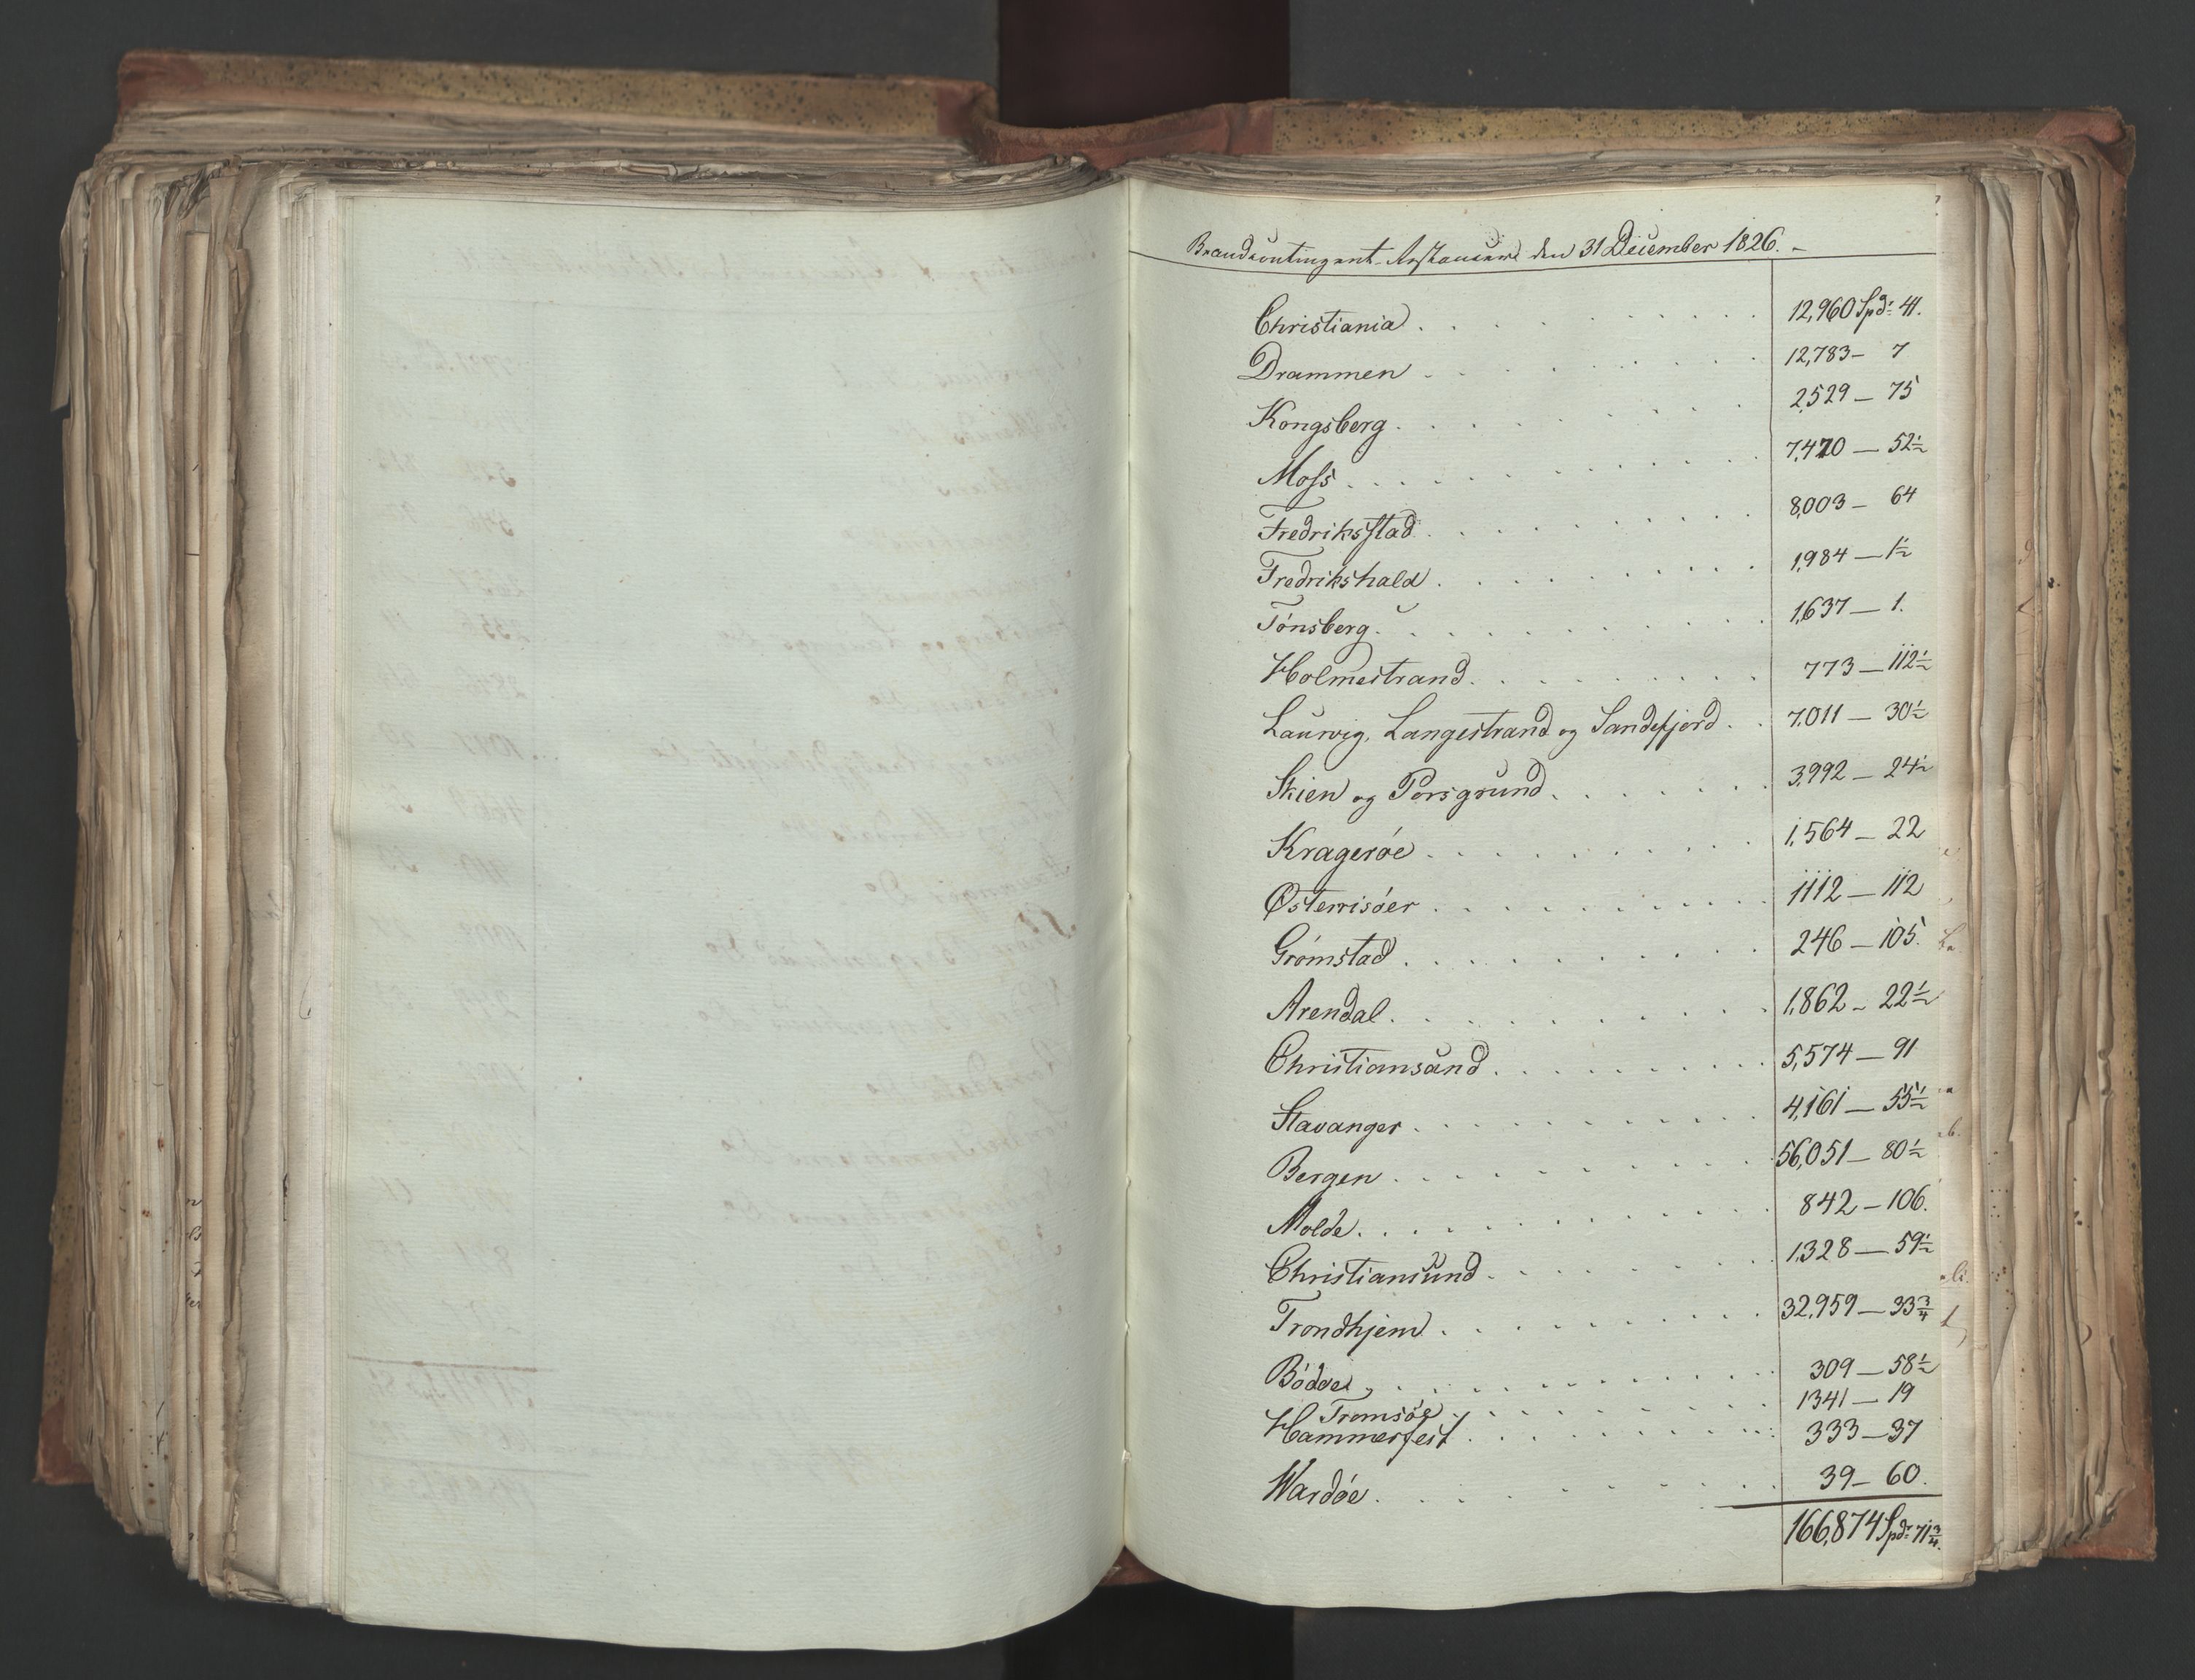 Brandcontingent-Restancerne den 31 December 1826. –
Christiania . . . . 12,960 Spdr 41.
Drammen . . . . 12,783 – 7
Kongsberg . . . . 2,529 – 75
Moss . . . . 7,470 – 52½
Fredriksstad . . . . 8,003 – 64
Fredrikshald . . . . 1,984 – 1½
Tönsberg . . . . 1,637 – 1.
Holmestrand . . . . 773 – 112½
Laurvig, Langestrand og Sandefjord . . 7,011 – 30½
Skien og Porsgrund . . . . 3,992 – 24½
Kragerøe . . . . 1,564 – 22
Østerrisöer . . . . 1112 – 112
Grömstad . . . . 246 – 105.
Arendal . . . . 1,862 – 22½
Christiansand . . . . 5,574 – 91
Stavanger . . . . 4,161 – 55½
Bergen . . . . 56,051 – 80½
Molde . . . . 842 – 106.
Christiansund . . . . 1,328 – 59½
Trondhjem . . . . 32,959 – 33¾
Bödöe . . . . 309 – 58½
Tromsöe . . . . 1341 – 19
Hammerfest . . . . 333 – 37
Wardöe . . . . 39 – 60.
166,874 Spdr 71¾.